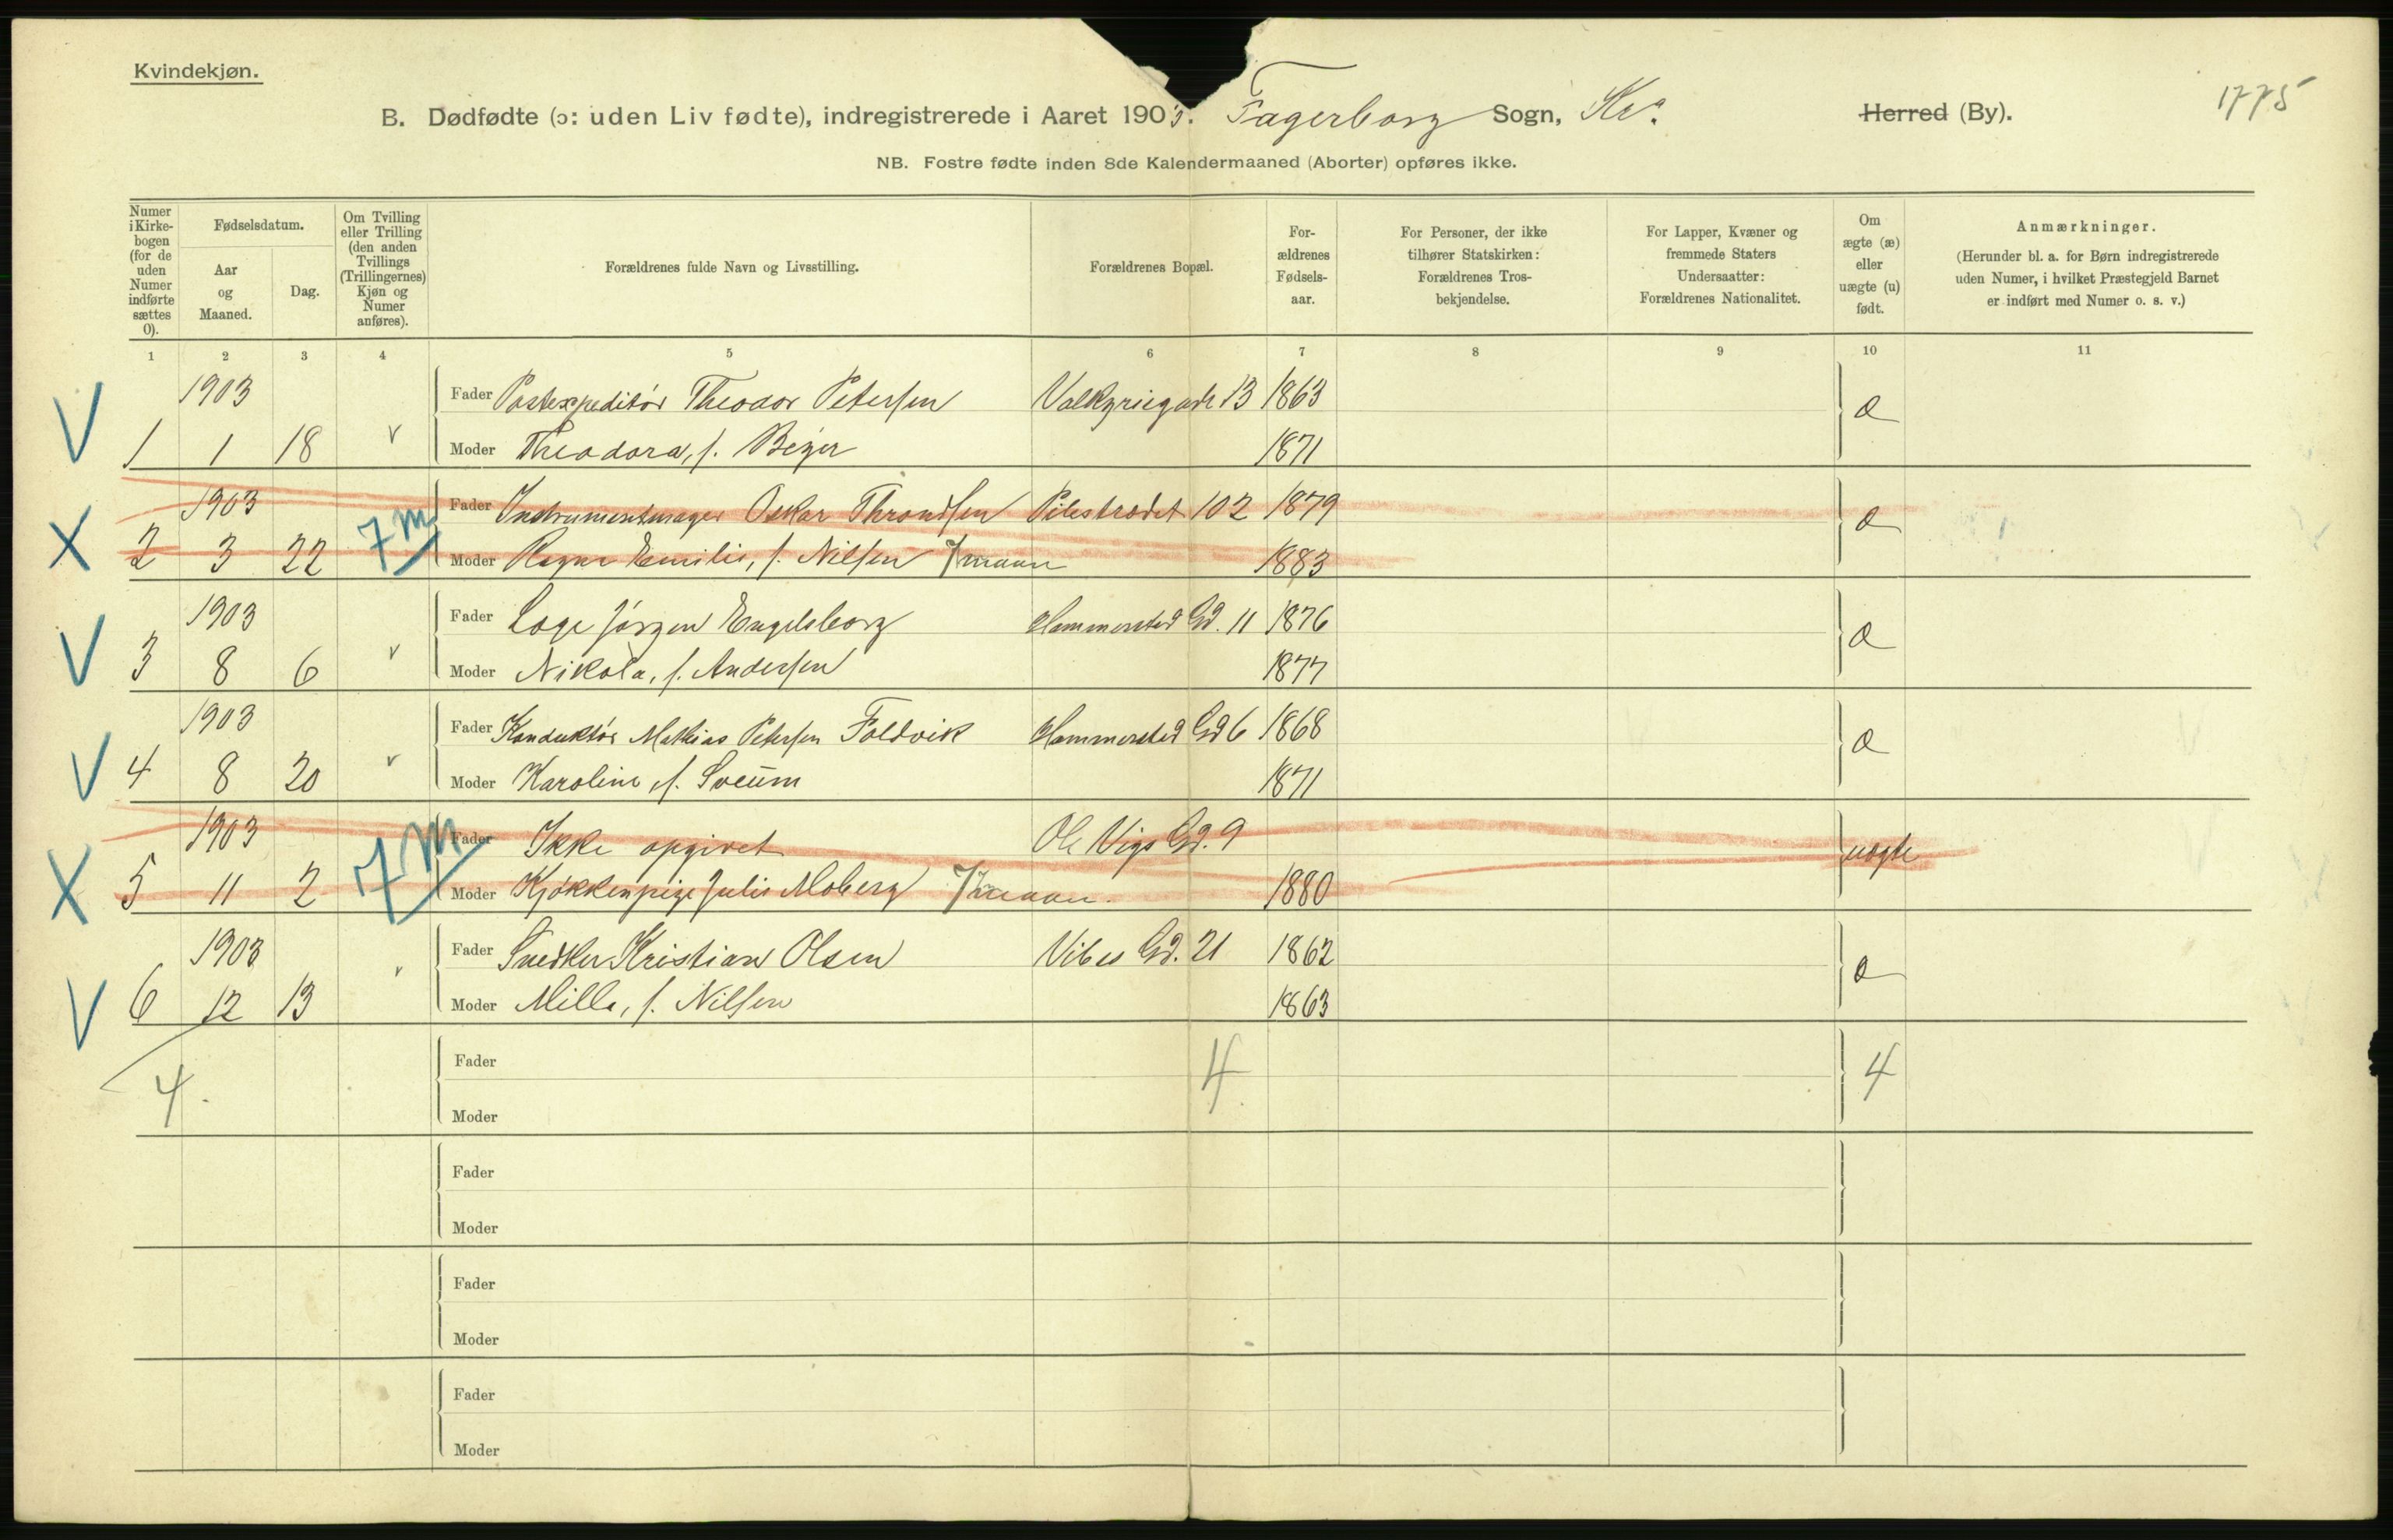 Kvindekjøn.
1775
B. Dødfødte (ɔ: uden Liv fødte), indregistrerede i Aaret 1903. Fagerborg Sogn, Kra. Herred (By).
NB. Fostre fødte inden 8de Kalendermaaned (Aborter) opføres ikke.
Numer i Kirke-bogen (for de uden Numer indførte sættes 0).
Fødselsdatum.
Aar og Maaned.
Dag.
Om Tvilling eller Trilling (den anden Tvillings (Trillingernes) Kjøn og Numer anføres).
Forældrenes fulde Navn og Livsstilling.
Forældrenes Bopæl.
For-ældrenes Fødsels-aar.
For Personer, der ikke tilhører Statskirken: Forældrenes Tros-bekjendelse.
For Lapper, Kvæner og fremmede Staters Undersaatter: Forældrenes Nationalitet.
Om ægte (æ) eller uægte (u) født.
Anmærkninger.
(Herunder bl. a. for Børn indregistrerede uden Numer, i hvilket Præstegjeld Barnet er indført med Numer o. s. v.)
1 2 3 4 5 6 7 8 9 10 11
1903 Fader Postexpeditør Theodor Petersen Valkyriegade 13 1863 æ
V 1 1 18 v Moder Theodora, f. Beyer 1871
1903 Fader Instrumentmager Oskar Throndsen Pilestrædet 102 1879 æ
X 2 3 22 7 m Moder Ragna Emilie, f. Nilsen 7 maan 1883
1903 Fader Lage Jörgen Engelsborg Hammersted Gd. 11 1876 æ
V 3 8 6 v Moder Nikola, f. Andersen 1877
1903 Fader Konduktör Mathias Petersen Foldvik Hammersted Gd 6 1868 æ
V 4 8 20 v Moder Karoline, f. Sveum 1871
1903 Fader Ikke opgivet Ole Vigs Gd. 9 uægte
X 5 11 2 7 m Moder Kjøkkenpige Julie Moberg 7 maan. 1880
1903 Fader Snedker Kristian Olsen Vibes Gd. 21 1862 æ
V 6 12 13 v Moder Milla, f. Nilsen 1863
Fader
4. 4. 4
Moder
Fader
Moder
Fader
Moder
Fader
Moder